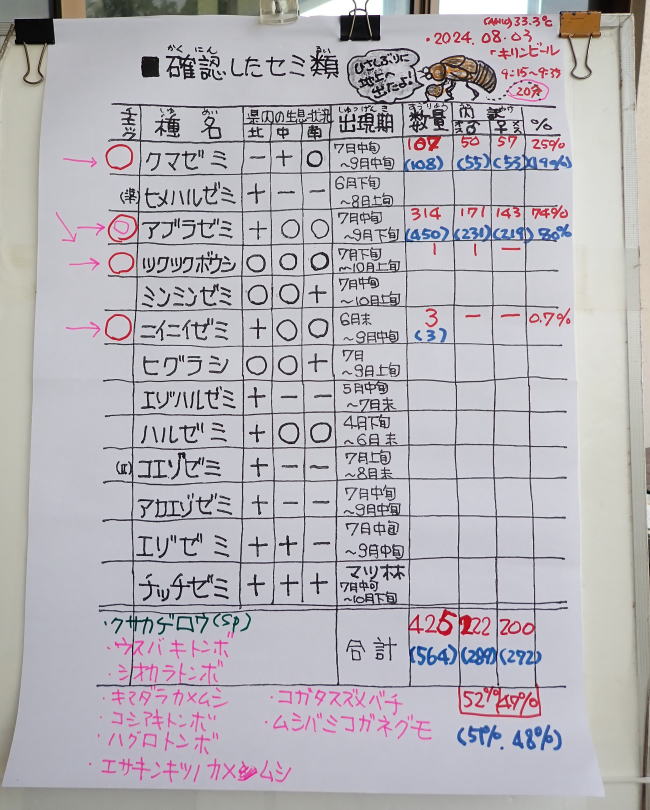 (AM10)33.3℃
・2024.08.03
「キリンビール
9:15~9:35
20分
かくにん るい
■確認したセミ類
ひさしぶりに
地上へ
出たよ!
チェック 種名 県内の生息状況 出現期 数量 内訳 %
北 中 南
クマゼミ − + ○ 7月中旬~9月中旬 107 50 57 25%
(108) (55) (53) (19%)
ヒメハルゼミ + − − 6月下旬~8月上旬
アブラゼミ + ○ ○ 7月中旬~9月下旬 314 171 143 74%
(450) (231) (219) 80%
ツクツクボウシ ○ ○ ○ 7月下旬~10月上旬 1 1 −
ミンミンゼミ ○ ○ + 7月中旬~10月上旬
ニイニイゼミ + ○ ○ 6月末~9月中旬 3 − − 0.7%
(3)
ヒグラシ ○ ○ + 7月~9月上旬
エゾハルゼミ + − − 5月中旬~7月末
ハルゼミ + ○ ○ 4月下旬~6月末
コエゾゼミ + − − 7月上旬~8月末
アカエゾゼミ + − − 7月中旬~9月中旬
エゾゼミ + + − 7月中旬~9月中旬
チッチゼミ + + + マツ林 7月中旬~10月下旬
合計 425 222 200
(564) (289) (272)
52% 47%
(51%. 48%)
・クサカゲロウ(sp)
・ウスバキトンボ
・シオカラトンボ
・キマダラカメムシ
・コシアキトンボ
・ハグロトンボ
・エサキモンキツノカメムシ
・コガタスズメバチ
・ムシバミコガネグモ